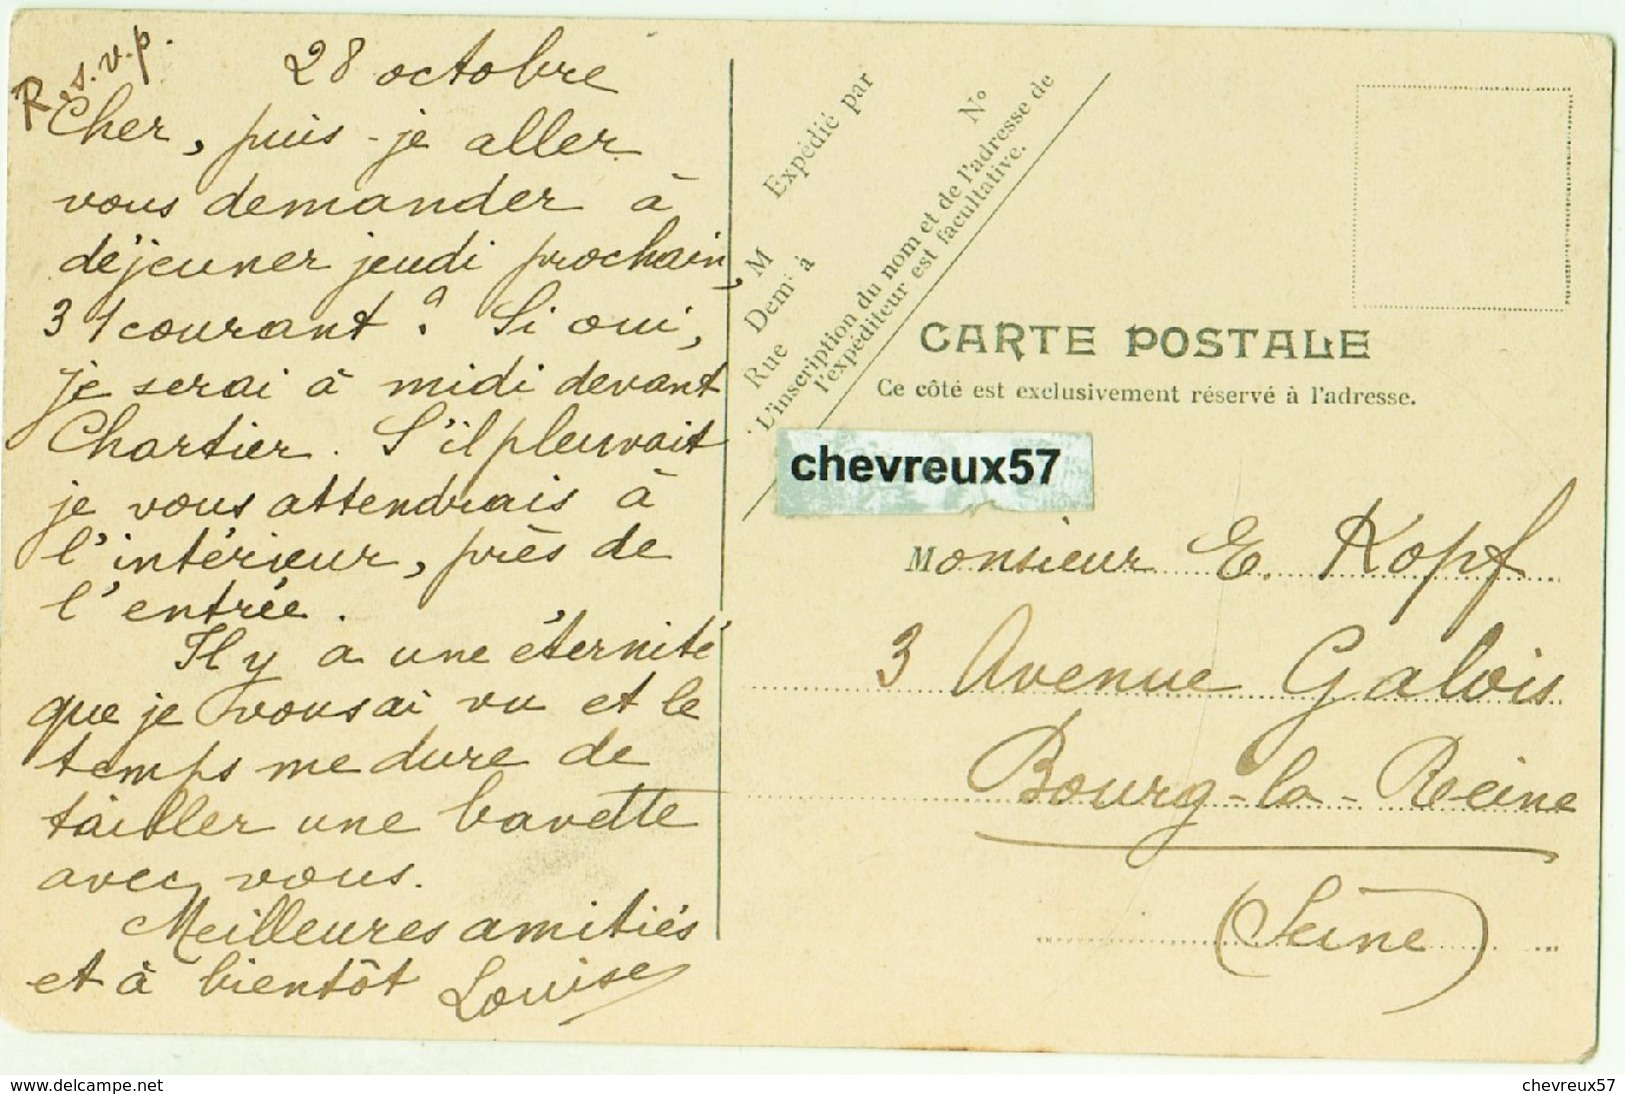 R.s.v.p.
28 octobre
Cher, puis-je aller
vous demander à
déjeuner jeudi prochain,
31 courant ? Si oui,
je serai à midi devant
Chartier. S'il pleuvait
je vous attendrais à
l'intérieur, près de
l'entrée.
Il y a une éternité
que je vous ai vu et le
temps me dure de
tailler une bavette
avec vous.
Meilleures amitiés
et à bientôt Louise
Expédié par
N°
M
Demt à
Rue
L'inscription du nom et de l'adresse de
l'expéditeur est facultative.
CARTE POSTALE
Ce côté est exclusivement réservé à l'adresse.
chevreux57
Monsieur E. Kopf
3 Avenue Galois
Bourg-la-Reine
(Seine)
www.delcampe.net
chevreux57